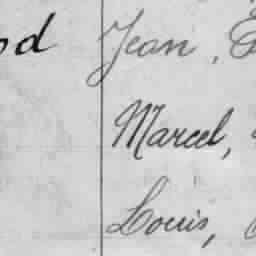 od Jean,
Marcel,
Louis,